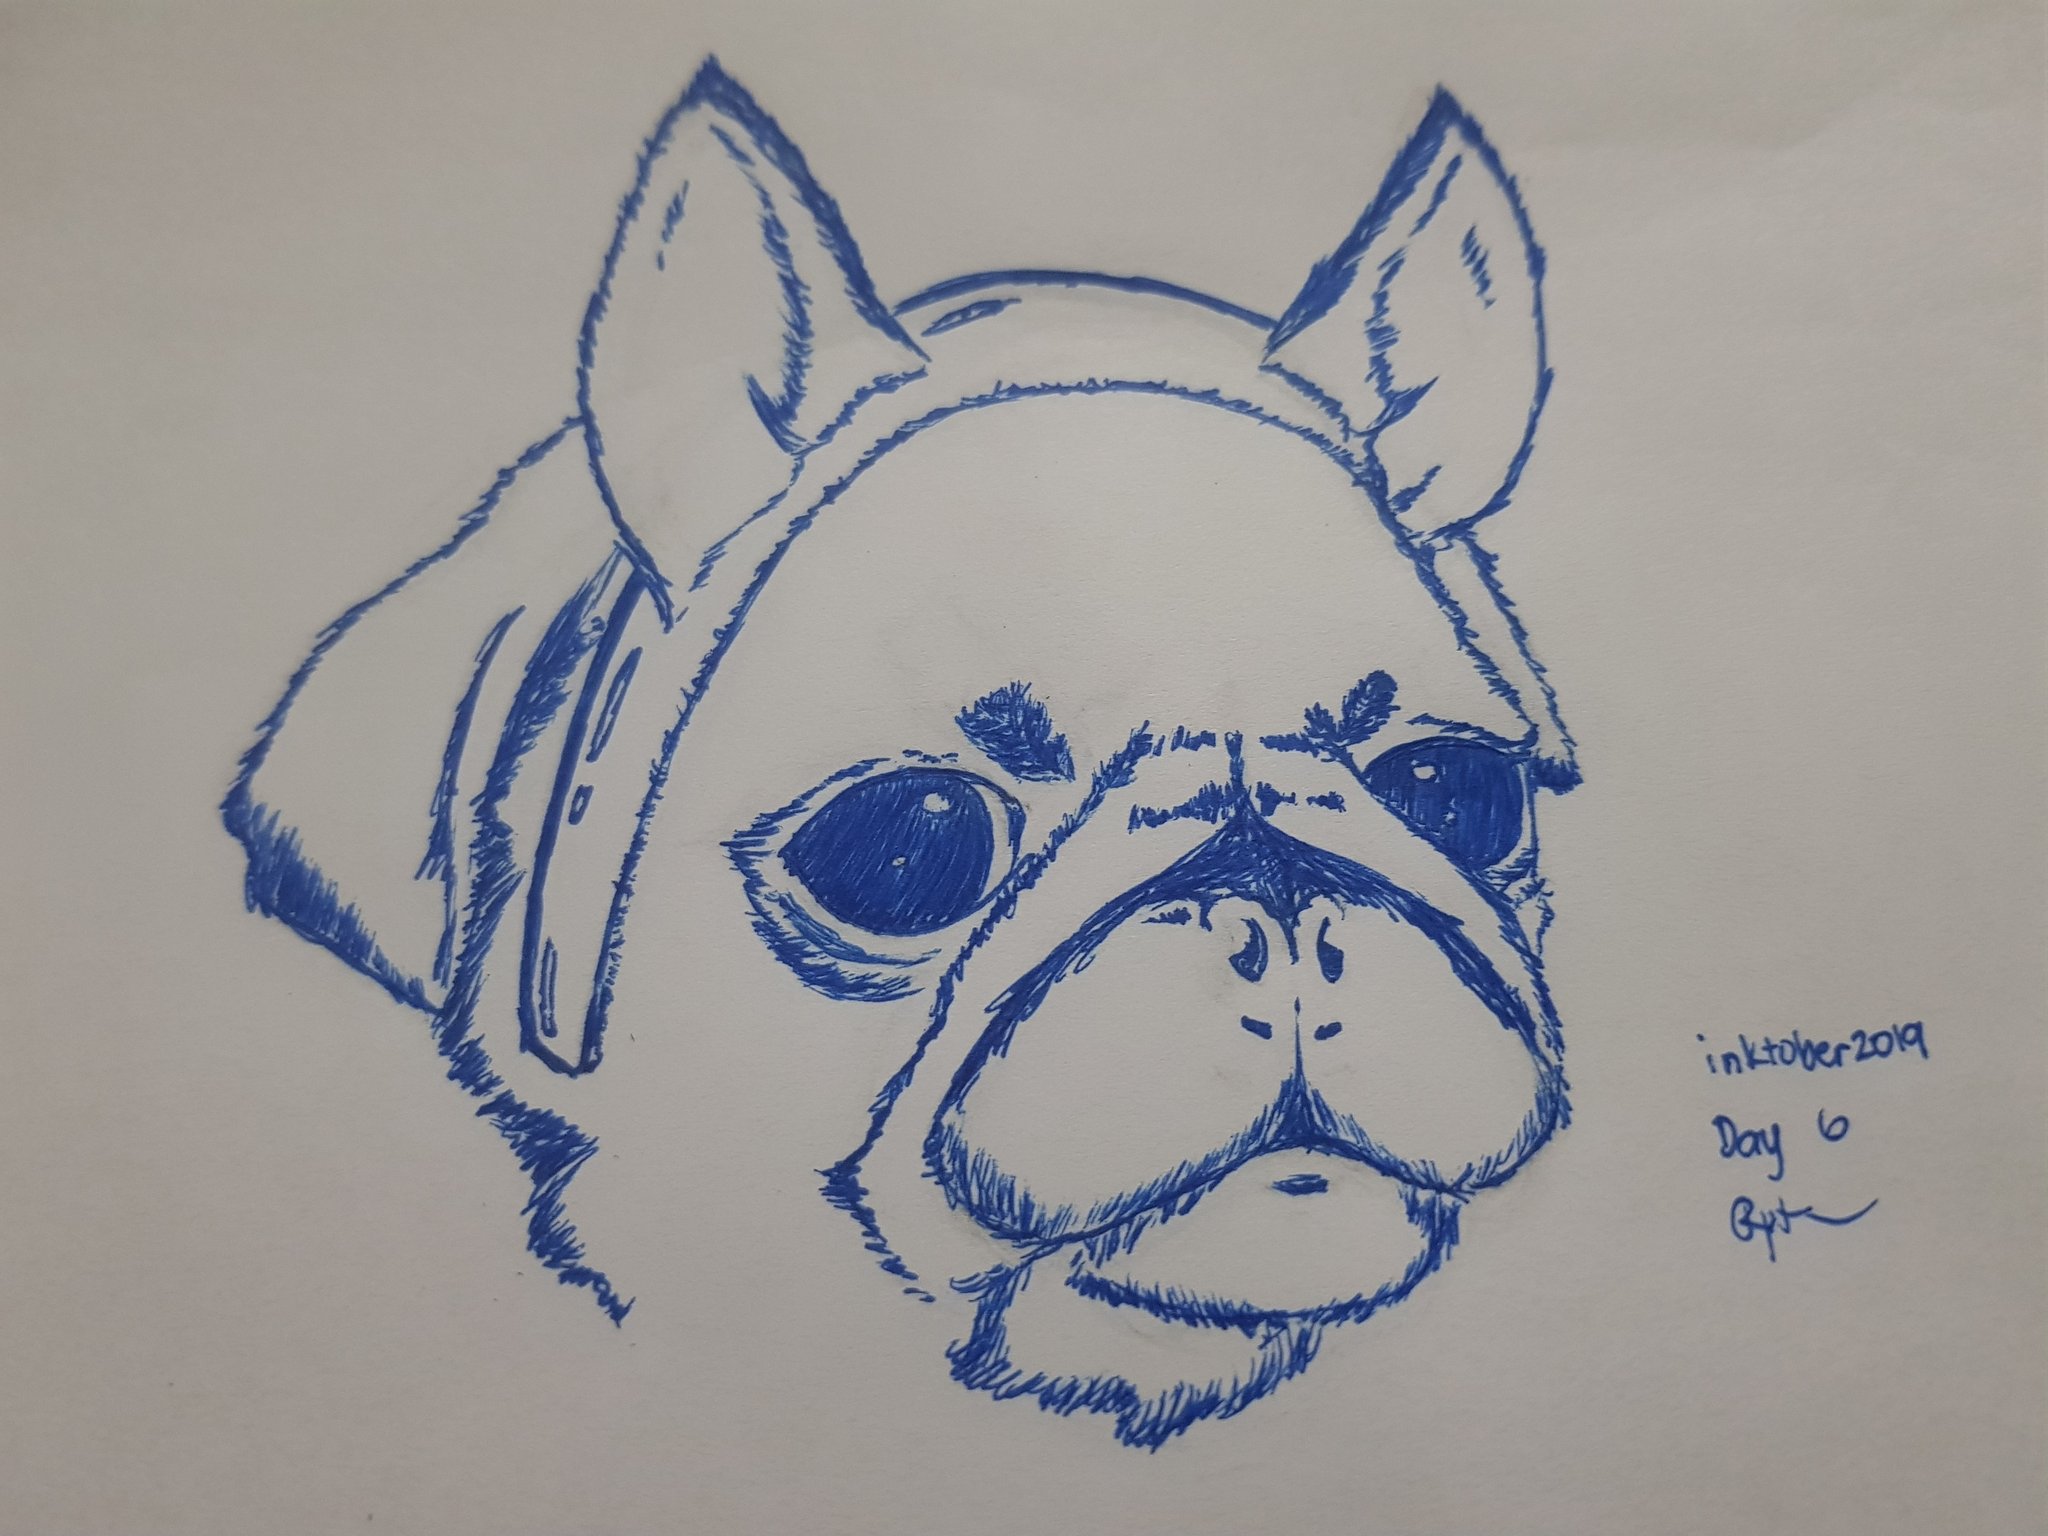 inktober2019
Day 6